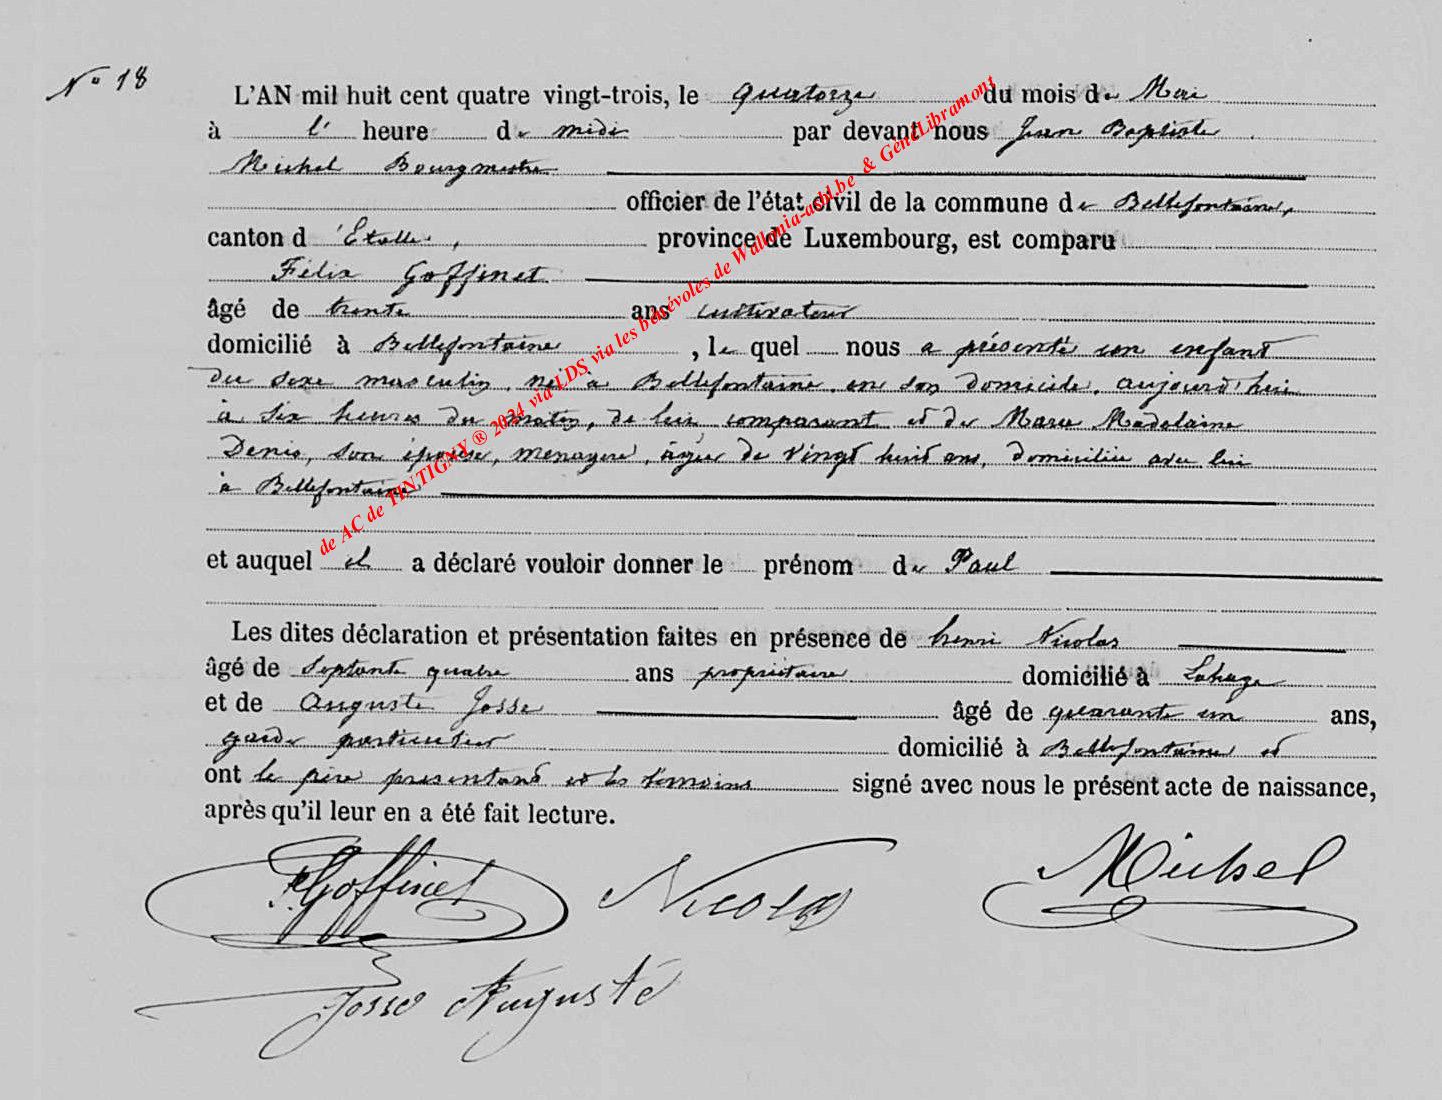 N° 18
L'AN mil huit cent quatre vingt-trois, le quatorze du mois de Mai
à l' heure de midi par devant nous Jean Baptiste
Michel Bourgmestre
officier de l'état civil de la commune de Bellefontaine,
canton d'Etalle, province de Luxembourg, est comparu
Félix Goffinet
âgé de trente ans cultivateur
domicilié à Bellefontaine, le quel nous a présenté un enfant
du sexe masculin, né à Bellefontaine, en son domicile, aujourd'hui
à six heures du matin, de lui comparant et de Marie Madelaine
Denis, son épouse, menagere, âgée de vingt huit ans, domiciliée avec lui
à Bellefontaine
et auquel il a déclaré vouloir donner le prénom de Paul
Les dites déclaration et présentation faites en présence de henri Nicolas
âgé de septante quatre ans propriétaire domicilié à Lahage
et de Auguste Josse âgé de quarante un ans,
garde particulier domicilié à Bellefontaine et
ont le père présentant et les témoins signé avec nous le présent acte de naissance,
après qu'il leur en a été fait lecture.
F. Goffinet Nicolas Michel
Josse Auguste
de AC de TINTIGNY ® 2024 via LDS via les bénévoles de Wallonia-asbl.be & GenéLibramont